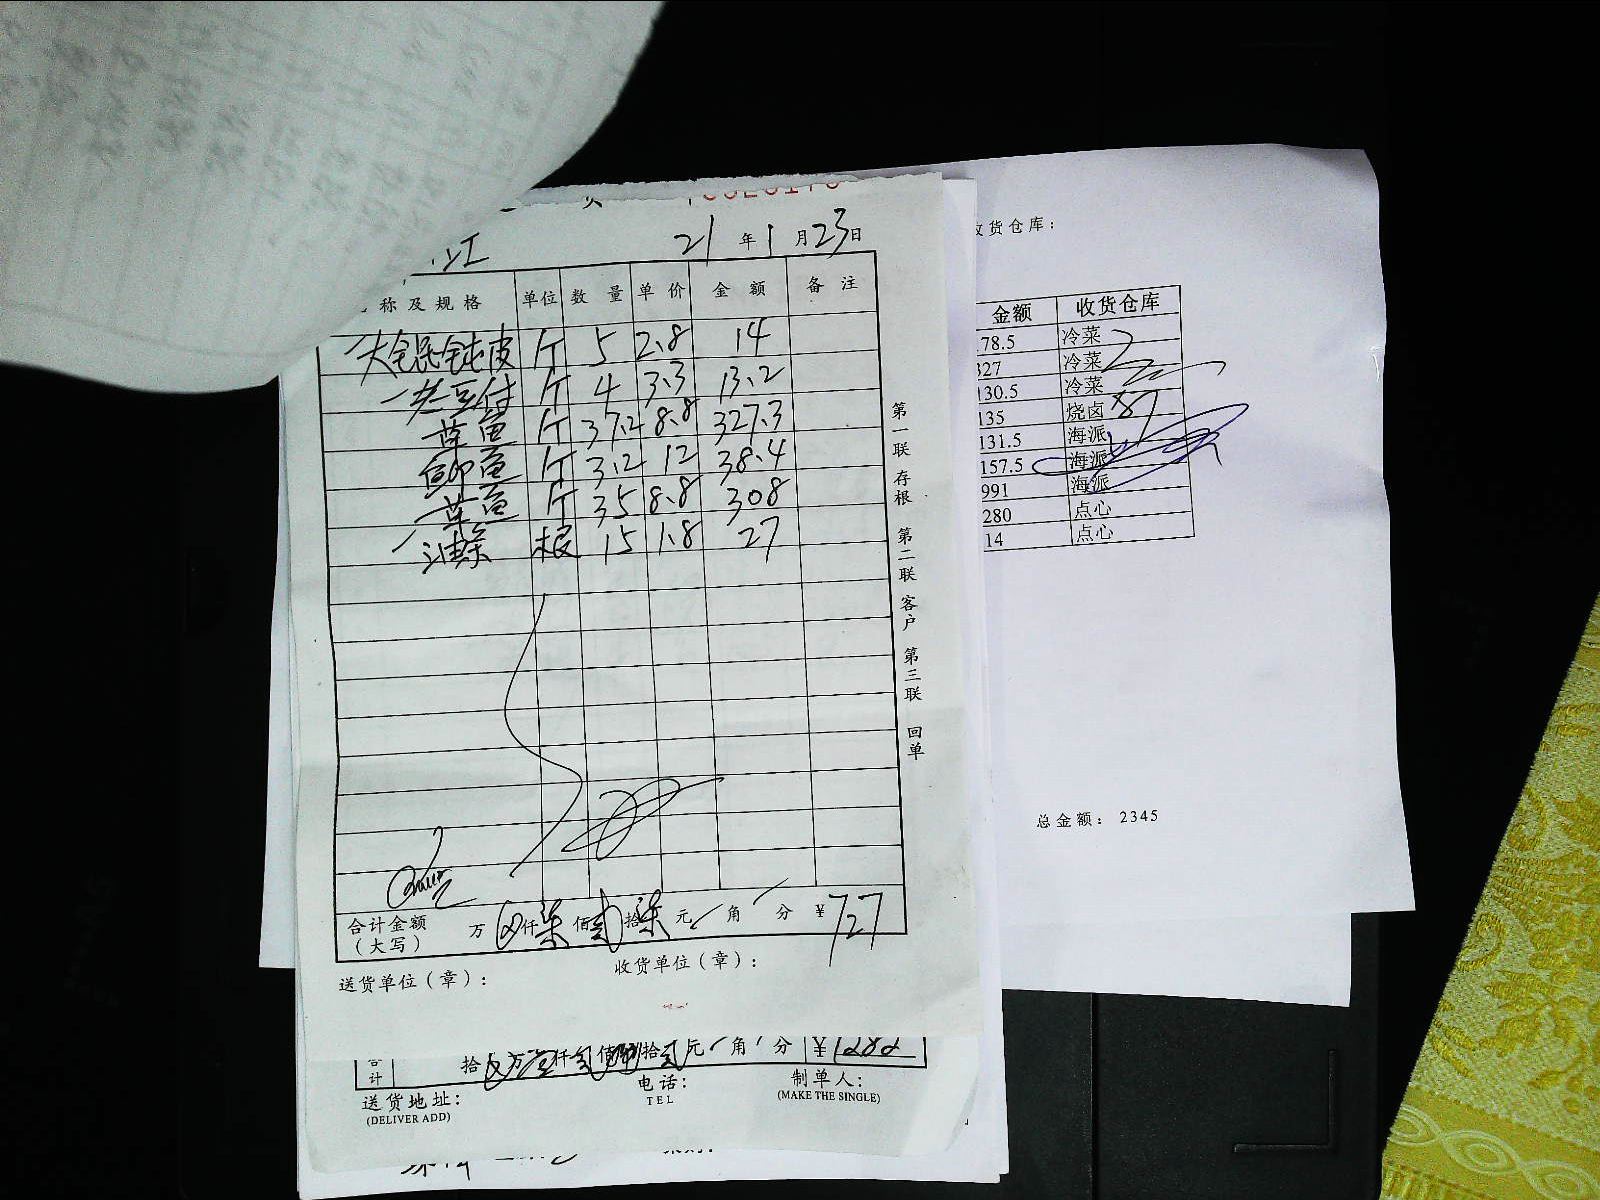 21 年 1 月 23 日
称及规格 单位 数量 单价 金额 备注
斤 5 2.8 14
老豆付 斤 4 3.3 13.2
草鱼 斤 37.2 8.8 327.3
鲫鱼 斤 3.2 12 38.4
草鱼 斤 35 8.8 308
油条 根 15 1.8 27
合计金额(大写) 万 仟 柒 佰 贰 拾 柒 元 角 分 ¥727
送货单位(章): 收货单位(章):
第一联 存根 第二联 客户 第三联 回单
合计 拾 万 壹 仟 贰 佰 捌 拾 贰 元 角 分 ¥ 1282
送货地址: 电话: 制单人:
(DELIVER ADD) TEL (MAKE THE SINGLE)
收货仓库:
金额 收货仓库
78.5 冷菜
327 冷菜
130.5 冷菜
135 烧卤
131.5 海派
157.5 海派
991 海派
280 点心
14 点心
总金额: 2345